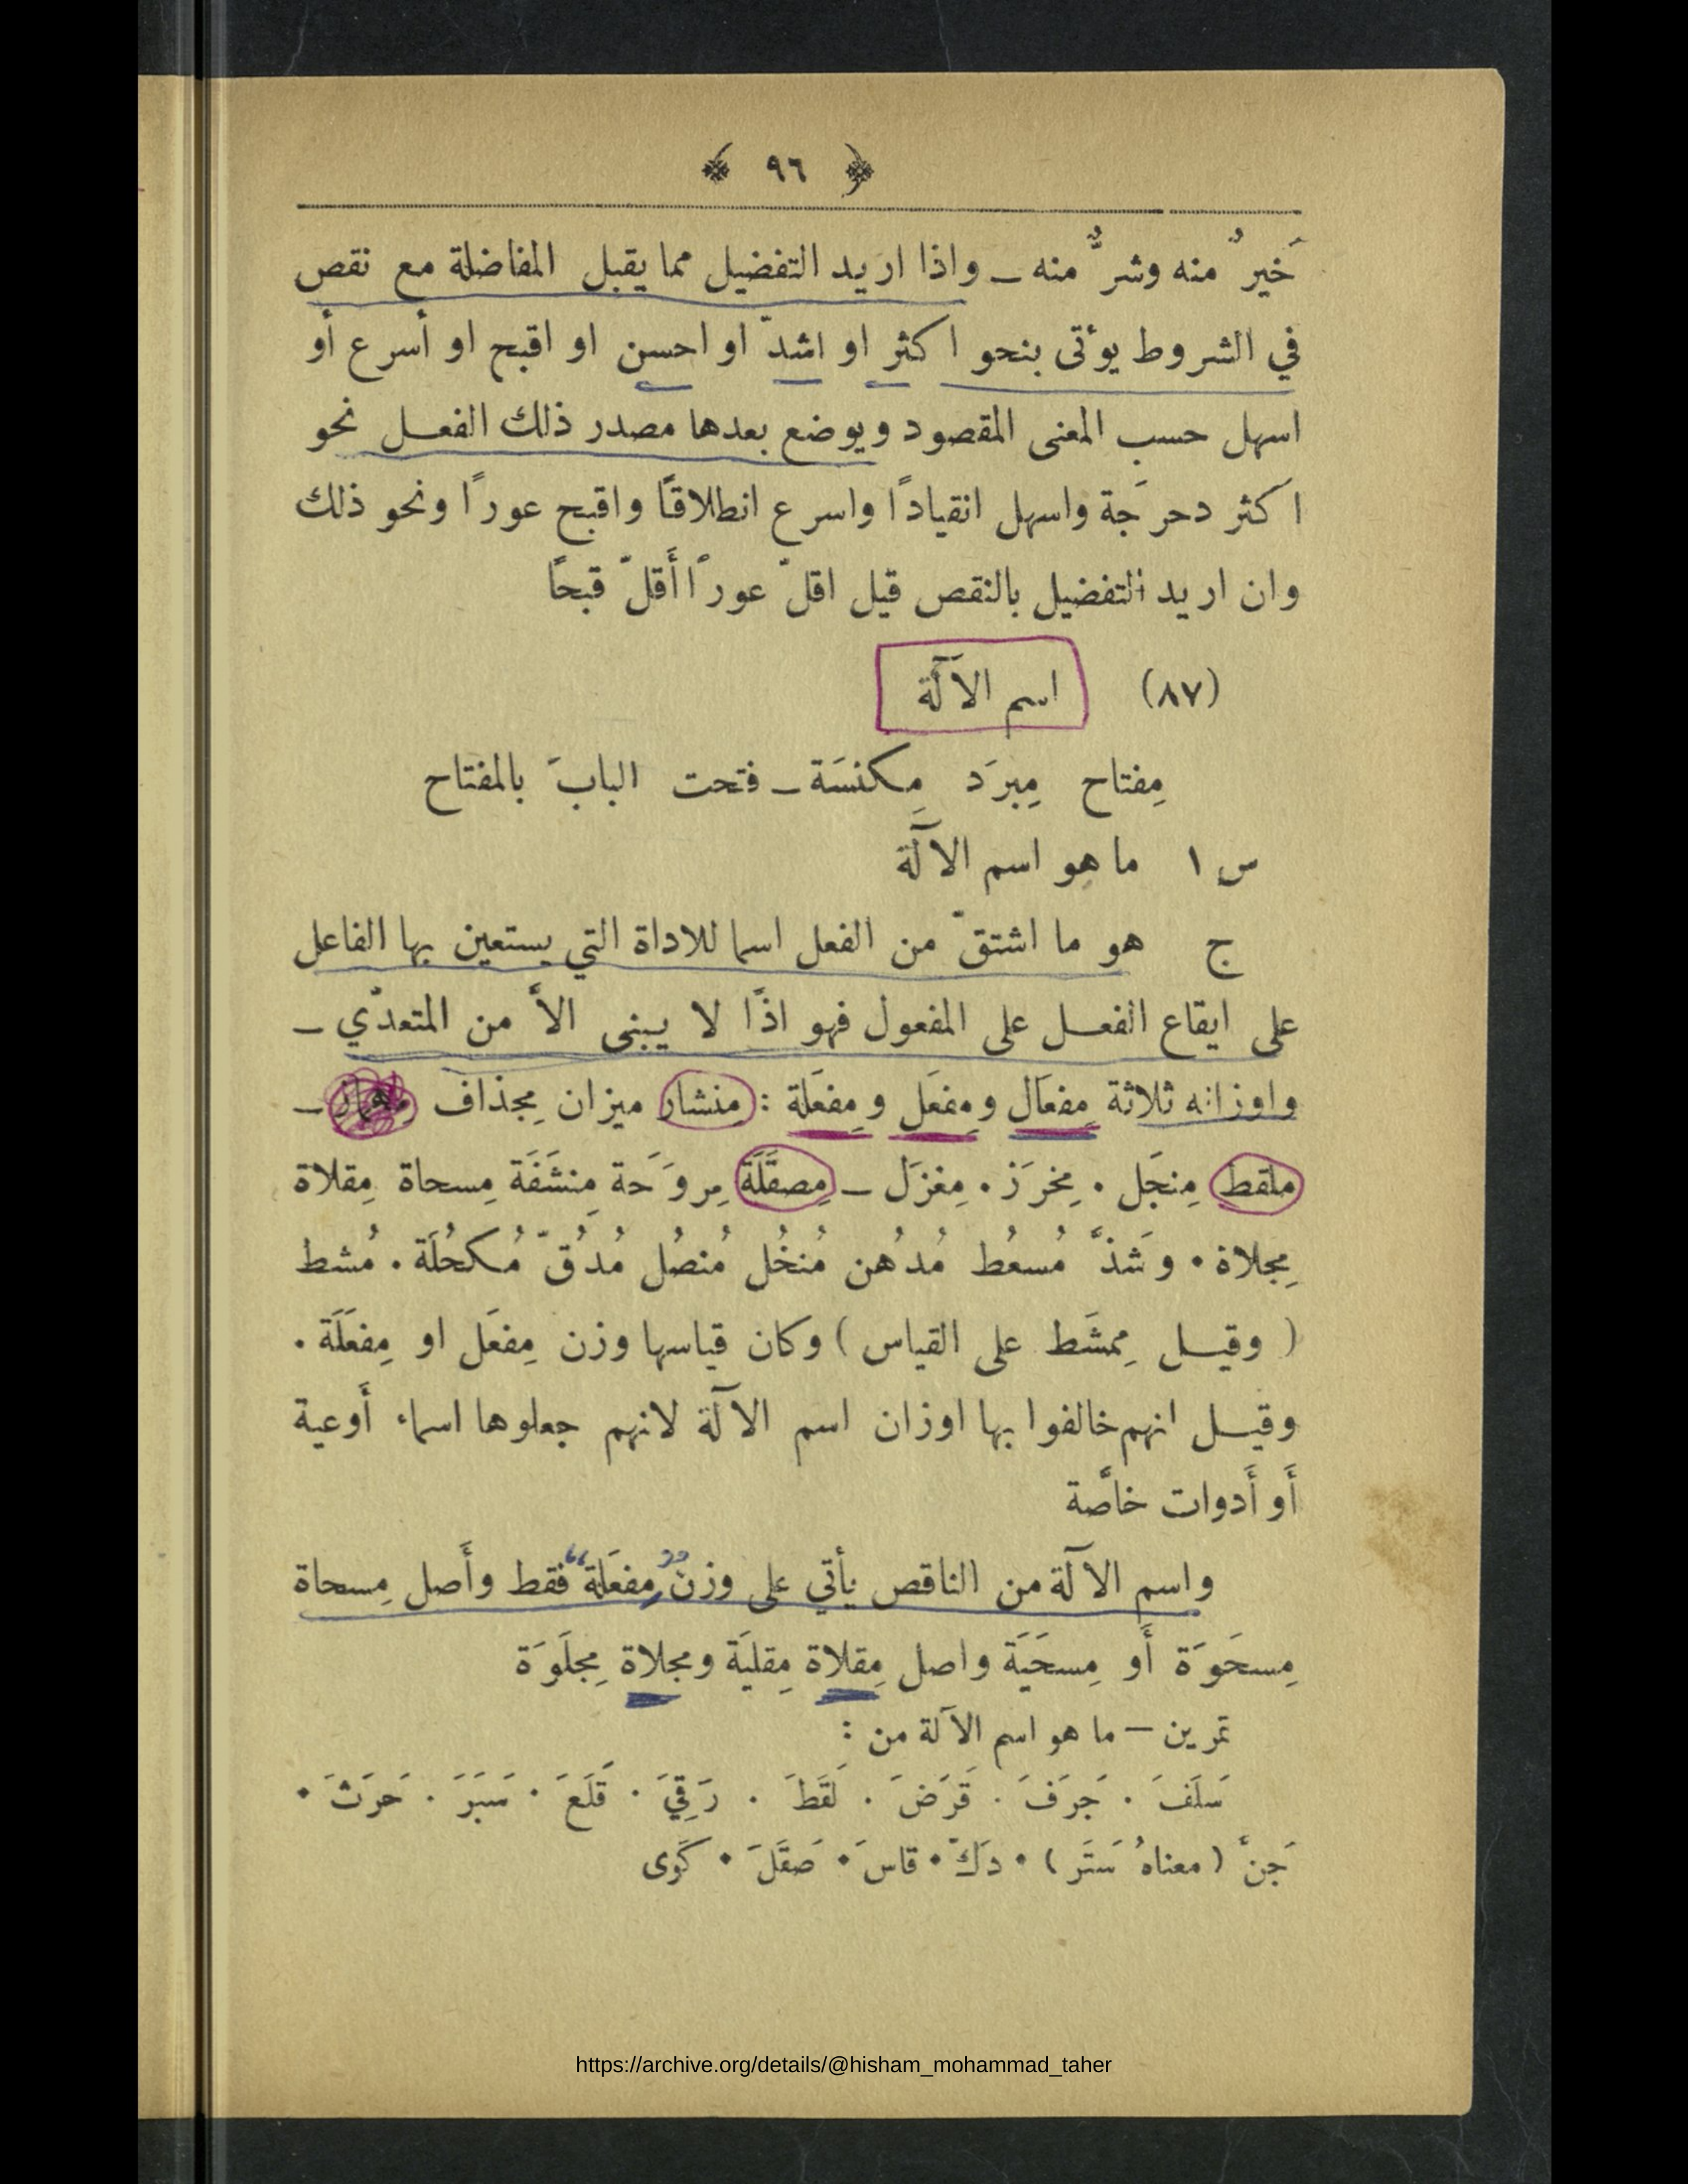 ﴿ ٩٦ ﴾
خَيرٌ منه وشرٌّ منه ــ واذا اريد التفضيل مما يقبل المفاضلة مع نقص
في الشروط يوءتى بنحو اكثر او اشدّ او احسن او اقبح او أسرع أو
اسهل حسب المعنى المقصود ويوضع بعدها مصدر ذلك الفعـل نحو
اكثر دحرَجة واسهل انقيادًا واسرع انطلاقًا واقبح عورًا ونحو ذلك
وان اريد التفضيل بالنقص قيل اقلّ عورًا أَقلّ قبحًا
(٨٧) اسم الآلَة
مِفتاح مِبرَد مِكنسَة ــ فتحت البابَ بالمفتاح
س ١ ما هو اسم الآلَة
ج هو ما اشتقّ من الفعل اسما للاداة التي يستعين بها الفاعل
على ايقاع الفعـل على المفعول فهو اذًا لا يـبنى الاَّ من المتعدّي ــ
واوزانه ثلاثة مِفعَال ومِفعَل ومِفعَلة : مِنشار ميزان مِجذاف ــ
ملقط مِنجَل ٠ مِخرَز ٠ مِغزَل ــ مِصقَلَة مِروَحَة مِنشَفَة مِسحاة مِقلاة
مِجلاة ٠ وشَذَّ مُسعُط مُدهُن مُنخُل مُنصُل مُدُقّ مُكحُلَة ٠ مُشط
( وقيـل مِمشَط على القياس ) وكان قياسها وزن مِفعَل او مِفعَلَة ٠
وقيـل انهم خالفوا بها اوزان اسم الآلة لانهم جعلوها اسماء أَوعية
أَو أَدوات خاصَّة
واسم الآلة من الناقص يأتي على وزن "مِفعَلة" فقط وأَصل مِسحاة
مِسحَوَة أَو مِسحَيَة واصل مِقلاة مِقليَة ومجلاة مِجلَوَة
تمرين — ما هو اسم الآلة من :
سَلَفَ ٠ جَرَفَ ٠ قَرَضَ ٠ لَقَطَ ٠ رَقِيَ ٠ قَلَعَ ٠ سَبَرَ ٠ حَرَثَ ٠
جَنَّ ( معناهُ سَتَر ) ٠ دَكّ ٠ قاسَ ٠ صَقَلَ ٠ كَوى
https://archive.org/details/@hisham_mohammad_taher